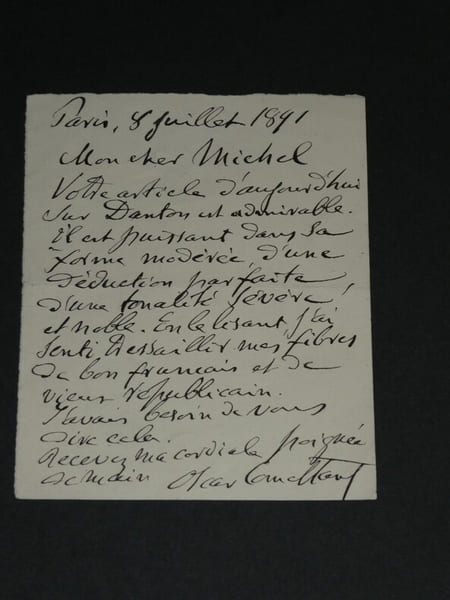 Paris, 8 Juillet 1891
Mon cher Michel
Votre article d'aujourd'hui
sur Danton est admirable.
Il est puissant dans sa
forme modérée, d'une
déduction parfaite
d'une tonalité sévère,
et noble. En le lisant j'ai
senti tressaillir mes fibres
de bon français et de
vieux républicain.
J'avais besoin de vous
dire cela.
Recevez ma cordiale poignée
de main Oscar Comettant